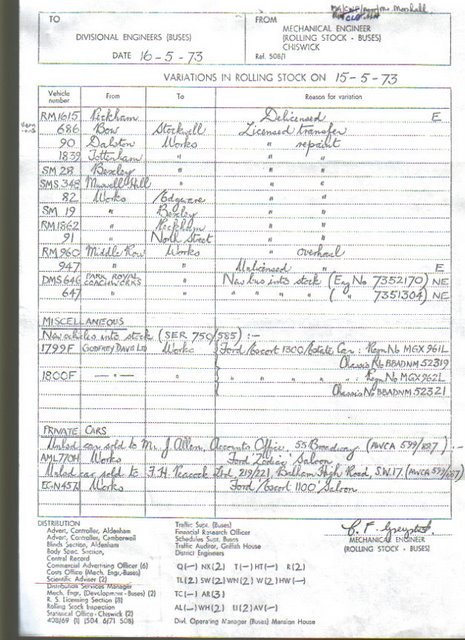 TO
DIVISIONAL ENGINEERS (BUSES)
DATE 16-5-73
FROM
MECHANICAL ENGINEER
(ROLLING STOCK - BUSES)
CHISWICK
Ref. 508/1
VARIATIONS IN ROLLING STOCK ON 15-5-73
Vehicle number From To Reason for variation
RM1615 Peckham Delicensed E
686 Bow Stockwell Licensed transfer
90 Dalston Works " repaint
1839 Tottenham " " "
SM 28 Bexley " " "
SMS 348 Muswell Hill " " "
82 Works Edgware " "
SM 19 " Bexley " "
RM1862 " Peckham " "
91 " North Street " "
RM960 Middle Row Works " overhaul
947 " " Unlicensed " E
DMS 646 PARK ROYAL COACHWORKS " New bus into stock (Eng No 7352170) NE
647 " " " " " " ( " 7351304) NE
MISCELLANEOUS
New vehicles into stock (SER 750/585) :-
1799F GODFREY DAVIS LTD Works Ford 'Escort 1300' Estate Car : Regn No MGX 961L
Chassis No BBADNM 52319
1800F — " — " " " " " : Regn No MGX 962L
Chassis No BBADNM 52321
PRIVATE CARS
Unlsd car sold to Mr J. Allen, Accounts Office, 55 Broadway (AWCA 599/887) :-
AML770H Works Ford 'Zodiac' Saloon
Unlsd car sold to F.H. Peacock Ltd, 219/221, Balham High Road, S.W.17. (AWCA 599/887)
EGN457J Works Ford 'Escort 1100' Saloon
DISTRIBUTION
Advert. Controller, Aldenham
Advert. Controller, Camberwell
Blinds Section, Aldenham
Body Spec. Section
Central Record
Commercial Advertising Officer (6)
Costs Office (Mech. Engr.-Buses)
Scientific Adviser (2)
Distribution Services Manager
Mech. Engr. (Development - Buses) (2)
R. S. Licensing Section (3)
Rolling Stock Inspection
Statistical Office - Chiswick (2)
408/69 (1) (504 6/71 508)
Traffic Supt. (Buses)
Financial Research Officer
Schedules Supt. Buses
Traffic Auditor, Griffith House
District Engineers
Q(—) NX(2) T(—) HT(—) R(2)
TL(2) SW(2) WN(2) W(2) HW(—)
TC(—) AR(3)
AL(—) WH(2) U(2) AV(—)
Divl. Operating Manager (Buses) Mansion House
MECHANICAL ENGINEER
(ROLLING STOCK - BUSES)